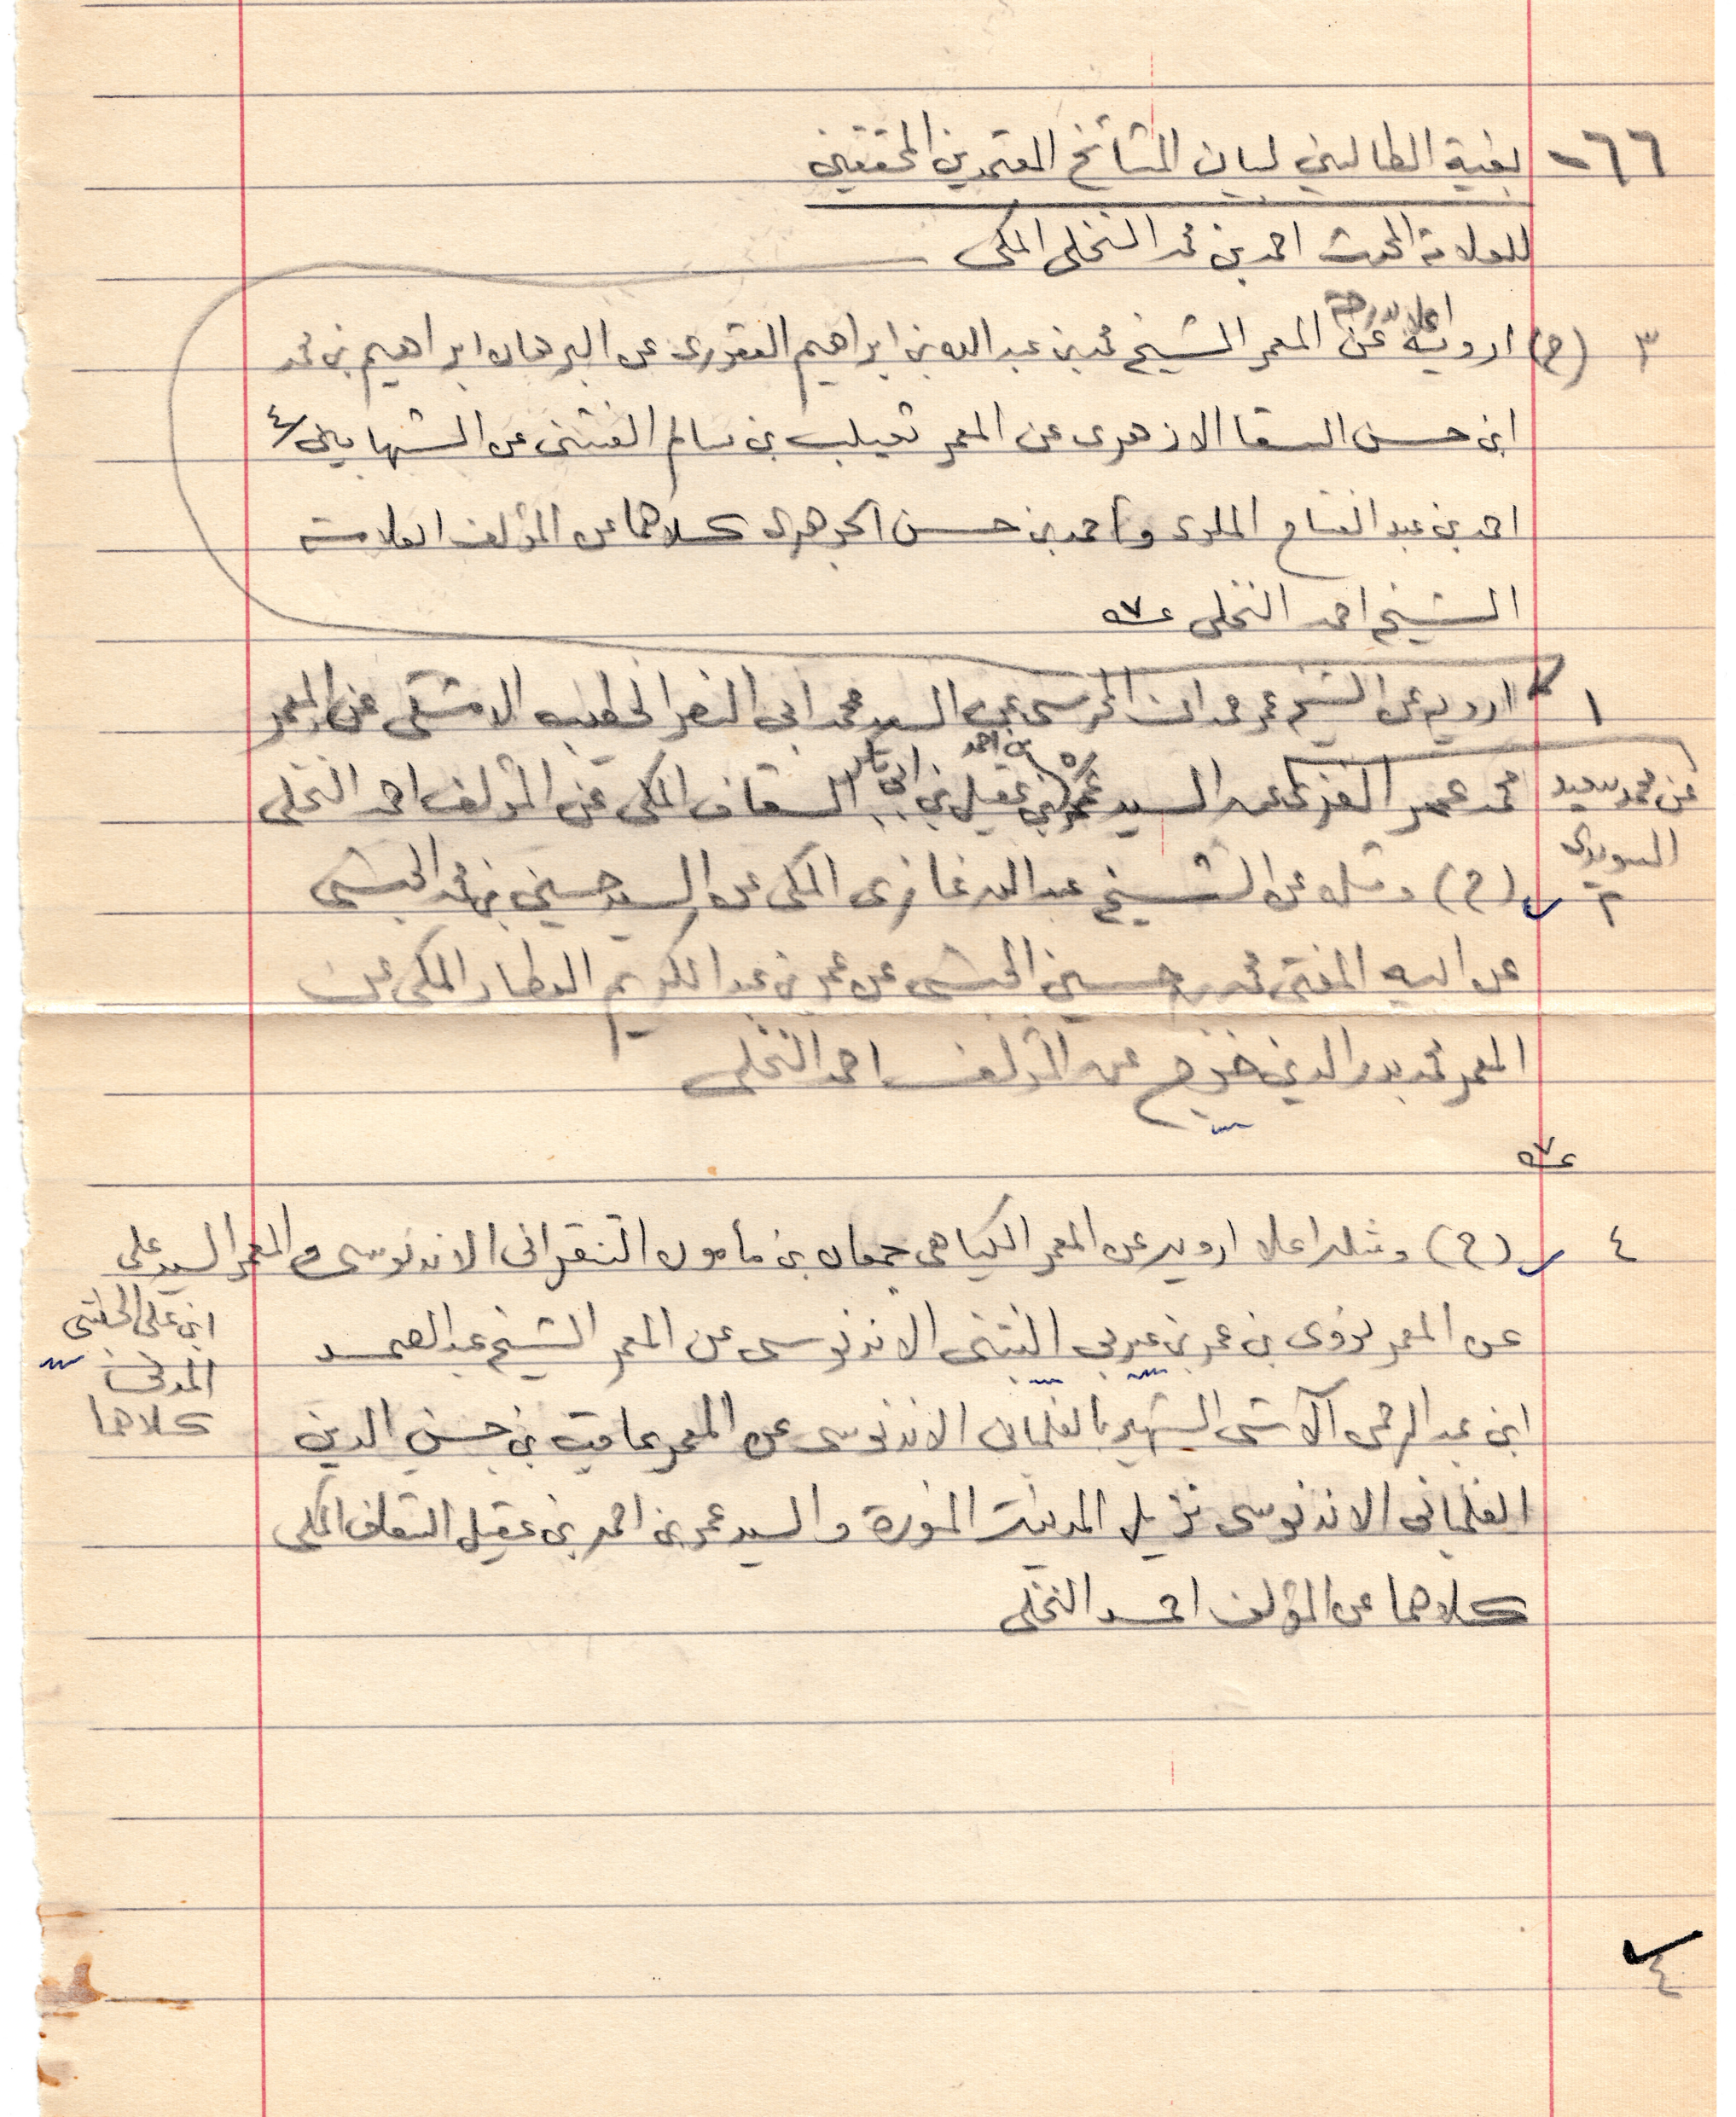 ٦٦- بغية الطالبين لبيان المشائخ المعتمدين المحققين
للعلامة المحدث احمد بن محمد النخلى المكى
اعلا بدرجة
٣ (ح) ارويه عن المعمر الشيخ محمد بن عبد الله بن ابراهيم العقورى عن البرهان ابراهيم بن محمد
ابن حسن السقا الازهرى عن المعمر ثعيلب بن سالم الفشنى عن الشهابين
احمد بن عبد الفتاح الملوى واحمد بن حسن الجوهرى كلاهما عن المؤلف العلامة
الشيخ احمد النخلى
١ ارويه عن الشيخ عمر حمدان المحرسى عن السيد محمد ابى النصر الخطيب الدمشقى عن المعمر
بن احمد
محمد عمر الغزى عن السيد عمر بن عقيل بن السقاف المكى عن المؤلف احمد النخلى
عن محمد سعيد
السويدى
٢ (ح) ومثله عن الشيخ عبد الله غازى المكى عن السيد حسين بن محمد الحبشى
عن ابيه المفتى محمد بن حسين الحبشى عن عمر بن عبد الكريم العطار المكى عن
المعمر محمد بدر الدين خوج عن المؤلف احمد النخلى
٤ (ح) ومثله اعلا ارويه عن المعمر الكياهى جمعان بن مأمون التنقرانى الاندنوسى والمعمر السيد على
ابن على الحبشى
المدنى
كلاهما
عن المعمر نووى بن عمر بن عربى البنتنى الاندنوسى عن المعمر الشيخ عبد الصمد
ابن عبد الرحمن الآشى الشهير بالفلمبانى الاندنوسى عن المعمر عاقب بن حسن الدين
الفلمبانى الاندنوسى نزيل المدينة المنورة والسيد عمر بن احمد بن عقيل السقاف المكى
كلاهما عن المؤلف احمد النخلى
٤